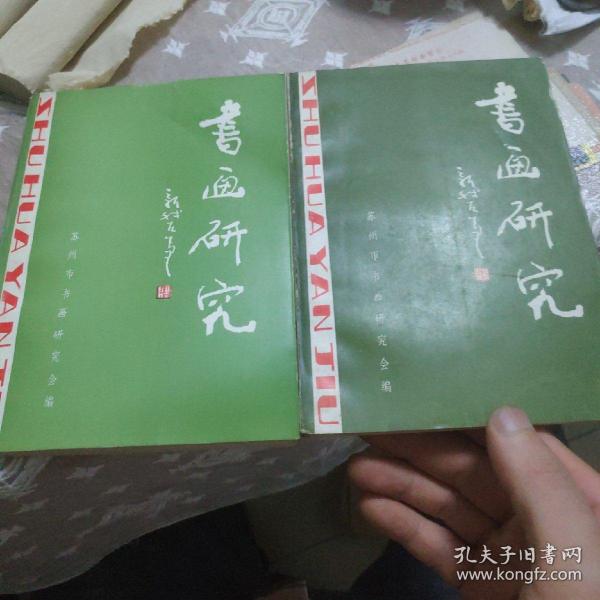 SHU HUA YAN JIU
書画研究
苏州市书画研究会编
SHU HUA YAN JIU
書画研究
苏州市书画研究会编
孔夫子旧书网
www.kongfz.com